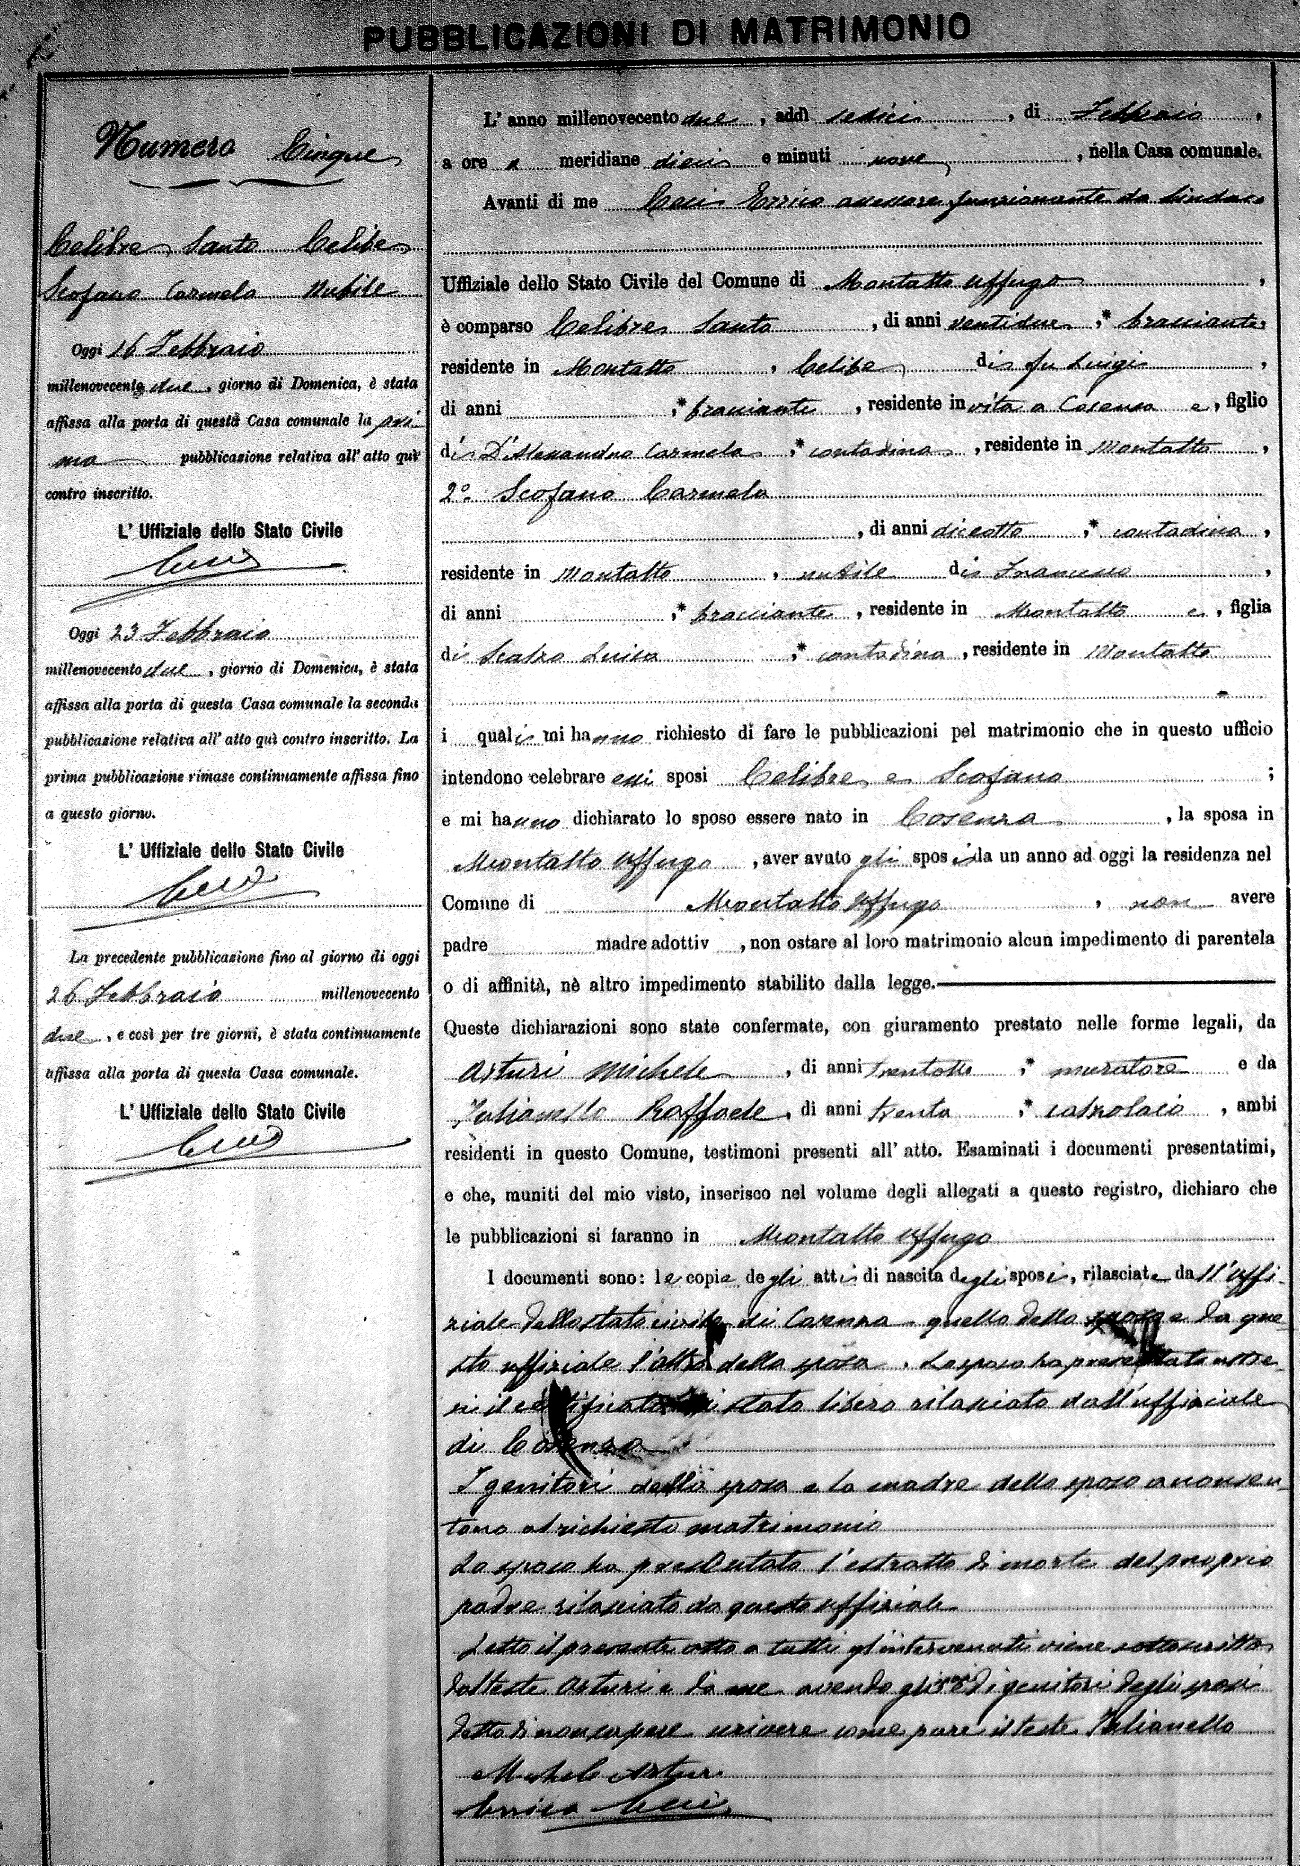 PUBBLICAZIONI DI MATRIMONIO
Numero Cinque
Celibre Santo Celibe
Scofano Carmela Nubile
Oggi 16 Febbraio
millenovecento due, giorno di Domenica, è stata
affissa alla porta di questa Casa comunale la pri-
ma pubblicazione relativa all' atto quì
contro inscritto.
L' Uffiziale dello Stato Civile
Oggi 23 Febbraio
millenovecento due, giorno di Domenica, è stata
affissa alla porta di questa Casa comunale la seconda
pubblicazione relativa all' atto quì contro inscritto. La
prima pubblicazione rimase continuamente affissa fino
a questo giorno.
L' Uffiziale dello Stato Civile
La precedente pubblicazione fino al giorno di oggi
26 Febbraio millenovecento
due, e così per tre giorni, è stata continuamente
affissa alla porta di questa Casa comunale.
L' Uffiziale dello Stato Civile
L' anno millenovecento due, addì sedici, di Febbraio,
a ore a meridiane dieci e minuti nove, nella Casa comunale.
Avanti di me Errico assessore funzionante da Sindaco
Uffiziale dello Stato Civile del Comune di Montalto Uffugo,
è comparso Celibre Santo, di anni ventidue, * bracciante,
residente in Montalto, Celibe di fu Luigi,
di anni , * bracciante, residente in vita a Cosenza e, figlio
di D'Alessandro Carmela, * contadina, residente in Montalto,
2º Scofano Carmela
, di anni diciotto, * contadina,
residente in Montalto, nubile di Francesco,
di anni , * bracciante, residente in Montalto e, figlia
di Luisa, * contadina, residente in Montalto
i quali mi hanno richiesto di fare le pubblicazioni pel matrimonio che in questo ufficio
intendono celebrare essi sposi Celibre e Scofano ;
e mi hanno dichiarato lo sposo essere nato in Cosenza, la sposa in
Montalto Uffugo, aver avuto gli sposi da un anno ad oggi la residenza nel
Comune di Montalto Uffugo, non avere
padre madre adottiv , non ostare al loro matrimonio alcun impedimento di parentela
o di affinità, nè altro impedimento stabilito dalla legge.
Queste dichiarazioni sono state confermate, con giuramento prestato nelle forme legali, da
Arturi Michele, di anni trentotto, * muratore e da
Julianello Raffaele, di anni trenta, * calzolaio, ambi
residenti in questo Comune, testimoni presenti all' atto. Esaminati i documenti presentatimi,
e che, muniti del mio visto, inserisco nel volume degli allegati a questo registro, dichiaro che
le pubblicazioni si faranno in Montalto Uffugo
I documenti sono: le copie degli atti di nascita degli sposi, rilasciate da ll'uffi-
ziale dello stato civile di Cosenza quello dello sposo e da que-
sto uffiziale l'altro della sposa. Lo sposo ha presentato
il certificato di stato libero rilasciato dall'uffiziale
di Cosenza
I genitori della sposa e la madre dello sposo acconsen-
tono al richiesto matrimonio
Lo sposo ha presentato l'estratto di morte del proprio
padre rilasciato da questo uffiziale
Letto il presente atto a tutti gl'intervenuti viene sottoscritto
dal teste Arturi e da me avendo gli sposi e di genitori degli sposi
detto di non sapere scrivere come pure il teste Julianello
Michele Arturi
Errico